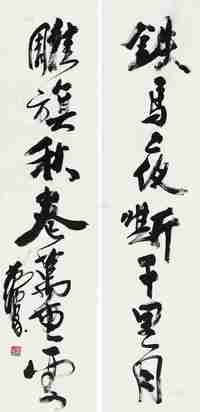 鐵馬夜嘶千里月
雕旗秋卷萬重雲